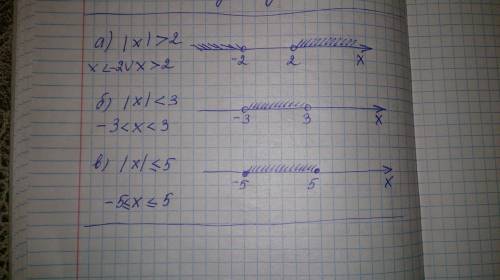 а) |x|>2
x<-2∨x>2
-2 2 x
б) |x|<3
-3<x<3
-3 3 x
в) |x|≤5
-5≤x≤5
-5 5 x